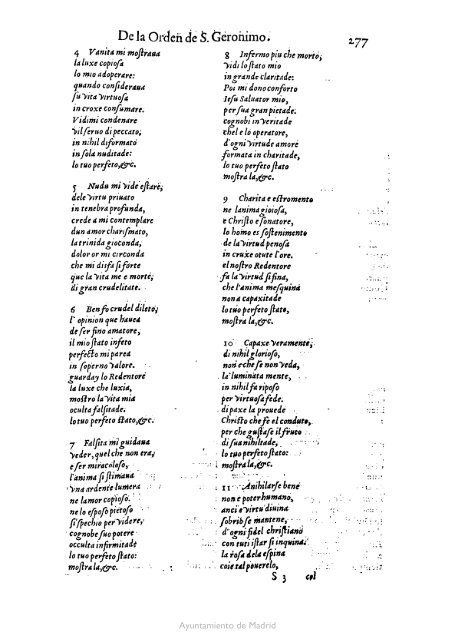 De la Orden de S. Geronimo.
277
4 Vanita mi mostraua
la luxe copiosa
lo mio adoperare:
quando consideraua
su vita virtuosa
in croxe consumare.
Vidimi condenare
vil seruo di peccato;
in nihil diformato
in sola nuditade:
lo tuo perfeto,&c.
5 Nudu mi vide estare;
dele virtu priuato
in tenebra profunda,
crede a mi contemplare
dun amor charismato,
la trinida gioconda,
dolor or mi circonda
che mi disfa si forte
que la vita me e morte;
di gran crudelitate.
6 Ben fo crudel dileto;
l' opinion que hauea
de ser fino amatore,
il mio stato infeto
perfecto mi parea
in soperno valore.
guarday lo Redentore
la luxe che luxia,
mostro la vita mia
oculta falsitade.
lo tuo perfeto stato,&c.
7 Falsita mi guidaua
veder, quel che non era;
e ser miracoloso,
l'anima si stimaua
vna ardente lumera
ne lamor copioso.
ne lo esposo pietoso
si spechio per videre;
cognobe suo potere
occulta infirmitade
lo tuo perfeto stato:
mostra la,&c.
8 Infermo piu che morto;
vidi lo stato mio
in grande claritade:
Poi mi dono conforto
Iesu Saluator mio,
per sua gran pietade.
cognobi in veritade
chel e lo operatore,
d'ogni virtude amore
formata in charitade,
lo tuo perfeto stato
mostra la,&c.
9 Charita e estromento
ne lanima gioiosa,
e Christo e sonatore,
lo homo es sostenimento
de la virtud penosa
in cruxe otute l'ore.
el nostro Redentore
fa la virtud si fina,
che l'anima mesquina
non a capaxitade
lo tuo perfeto stato,
mostra la,&c.
10 Capaxe veramente;
di nihil glorioso,
non e che se non veda,
la luminata mente,
in nihil fa riposo
per virtuosa fede.
di paxe la prouede
Christo che fe el conduto,
per che gustase il fruto
di sua nihiltade,
lo tuo perfeto stato:
mostra la,&c.
11 Anihilarse bene
non e poter humano,
anci e virtu diuina
sobrib se mantene,
d'ogni fidel christiano
con tuti istar si inquina:
la rosa dela espina
coie tal pouerelo,
S 3 col
Ayuntamiento de Madrid